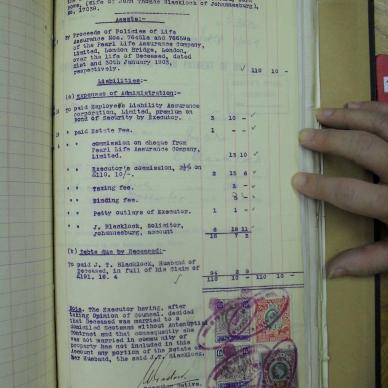 (Wife of John Thomas Blacklock of Johannesburg),
No. 17039.
Assets:-
By Proceeds of Policies of Life
Assurance Nos. 76452a and 76659a
of the Pearl Life Assurance Company,
Limited, London Bridge, London,
over the life of Deceased, dated
21st and 30th January 1903,
respectively. 110 10 -
Liabilities:-
(a) Expenses of Administration:-
To paid Employers Liability Assurance
Corporation, Limited, premium on
Bond of Security by Executor. 3 10 -
" paid Estate Fee. 1 - -
" " commission on cheque from
Pearl Life Assurance Company,
Limited. 13 10
" " Executor's commission, 2½% on
£110. 10/-. 2 15 6
" " Taxing fee.
" " Binding fee.
" " Petty outlays of Executor. 1 1 -
" " J. Blacklock, Solicitor,
Johannesburg, account
(b) Debts due by Deceased:-
To paid J. T. Blacklock, Husband of
Deceased, in full of his Claim of
£191. 16. 4
110 10 - 110 10 -
Note. The Executor having, after
taking Opinion of Counsel, decided
that Deceased was married to a
domiciled Scotsman without Antenuptial
Contract and that consequently she
was not married in community of
property has not included in this
Account any portion of the Estate of
her Husband, the said J.T. Blacklock.
Executor Dative.